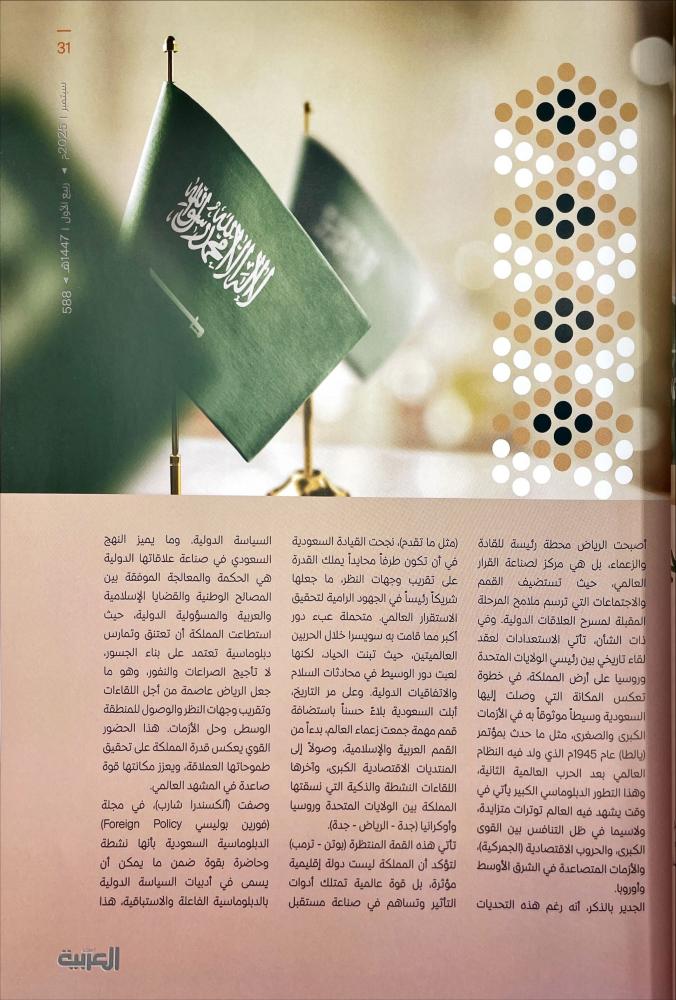 31
سبتمبر | 2025م ◂ ربيع الأول | 1447هـ ◂ 588
لا إله إلا الله محمد رسول الله
أصبحت الرياض محطة رئيسة للقادة
والزعماء، بل هي مركز لصناعة القرار
العالمي، حيث تستضيف القمم
والاجتماعات التي ترسم ملامح المرحلة
المقبلة لمسرح العلاقات الدولية. وفي
ذات الشأن، تأتي الاستعدادات لعقد
لقاء تاريخي بين رئيسي الولايات المتحدة
وروسيا على أرض المملكة، في خطوة
تعكس المكانة التي وصلت إليها
السعودية وسيطاً موثوقاً به في الأزمات
الكبرى والصغرى، مثل ما حدث بمؤتمر
(يالطا) عام 1945م الذي ولد فيه النظام
العالمي بعد الحرب العالمية الثانية،
وهذا التطور الدبلوماسي الكبير يأتي في
وقت يشهد فيه العالم توترات متزايدة،
ولاسيما في ظل التنافس بين القوى
الكبرى، والحروب الاقتصادية (الجمركية)،
والأزمات المتصاعدة في الشرق الأوسط
وأوروبا.
الجدير بالذكر، أنه رغم هذه التحديات
(مثل ما تقدم)، نجحت القيادة السعودية
في أن تكون طرفاً محايداً يملك القدرة
على تقريب وجهات النظر، ما جعلها
شريكاً رئيساً في الجهود الرامية لتحقيق
الاستقرار العالمي. متحملة عبء دور
أكبر مما قامت به سويسرا خلال الحربين
العالميتين، حيث تبنت الحياد، لكنها
لعبت دور الوسيط في محادثات السلام
والاتفاقيات الدولية. وعلى مر التاريخ،
أبلت السعودية بلاءً حسناً باستضافة
قمم مهمة جمعت زعماء العالم، بدءاً من
القمم العربية والإسلامية، وصولاً إلى
المنتديات الاقتصادية الكبرى، وآخرها
اللقاءات النشطة والذكية التي نسقتها
المملكة بين الولايات المتحدة وروسيا
وأوكرانيا (جدة - الرياض - جدة).
تأتي هذه القمة المنتظرة (بوتن - ترمب)
لتؤكد أن المملكة ليست دولة إقليمية
مؤثرة، بل قوة عالمية تمتلك أدوات
التأثير وتساهم في صناعة مستقبل
السياسة الدولية. وما يميز النهج
السعودي في صناعة علاقاتها الدولية
هي الحكمة والمعالجة الموفقة بين
المصالح الوطنية والقضايا الإسلامية
والعربية والمسؤولية الدولية، حيث
استطاعت المملكة أن تعتنق وتمارس
دبلوماسية تعتمد على بناء الجسور،
لا تأجيج الصراعات والنفور، وهو ما
جعل الرياض عاصمة من أجل اللقاءات
وتقريب وجهات النظر والوصول للمنطقة
الوسطى وحل الأزمات. هذا الحضور
القوي يعكس قدرة المملكة على تحقيق
طموحاتها العملاقة، ويعزز مكانتها قوة
صاعدة في المشهد العالمي.
وصفت (ألكسندرا شارب)، في مجلة
(فورين بوليسي Foreign Policy)
الدبلوماسية السعودية بأنها نشطة
وحاضرة بقوة ضمن ما يمكن أن
يسمى في أدبيات السياسة الدولية
بالدبلوماسية الفاعلة والاستباقية، هذا
العربية